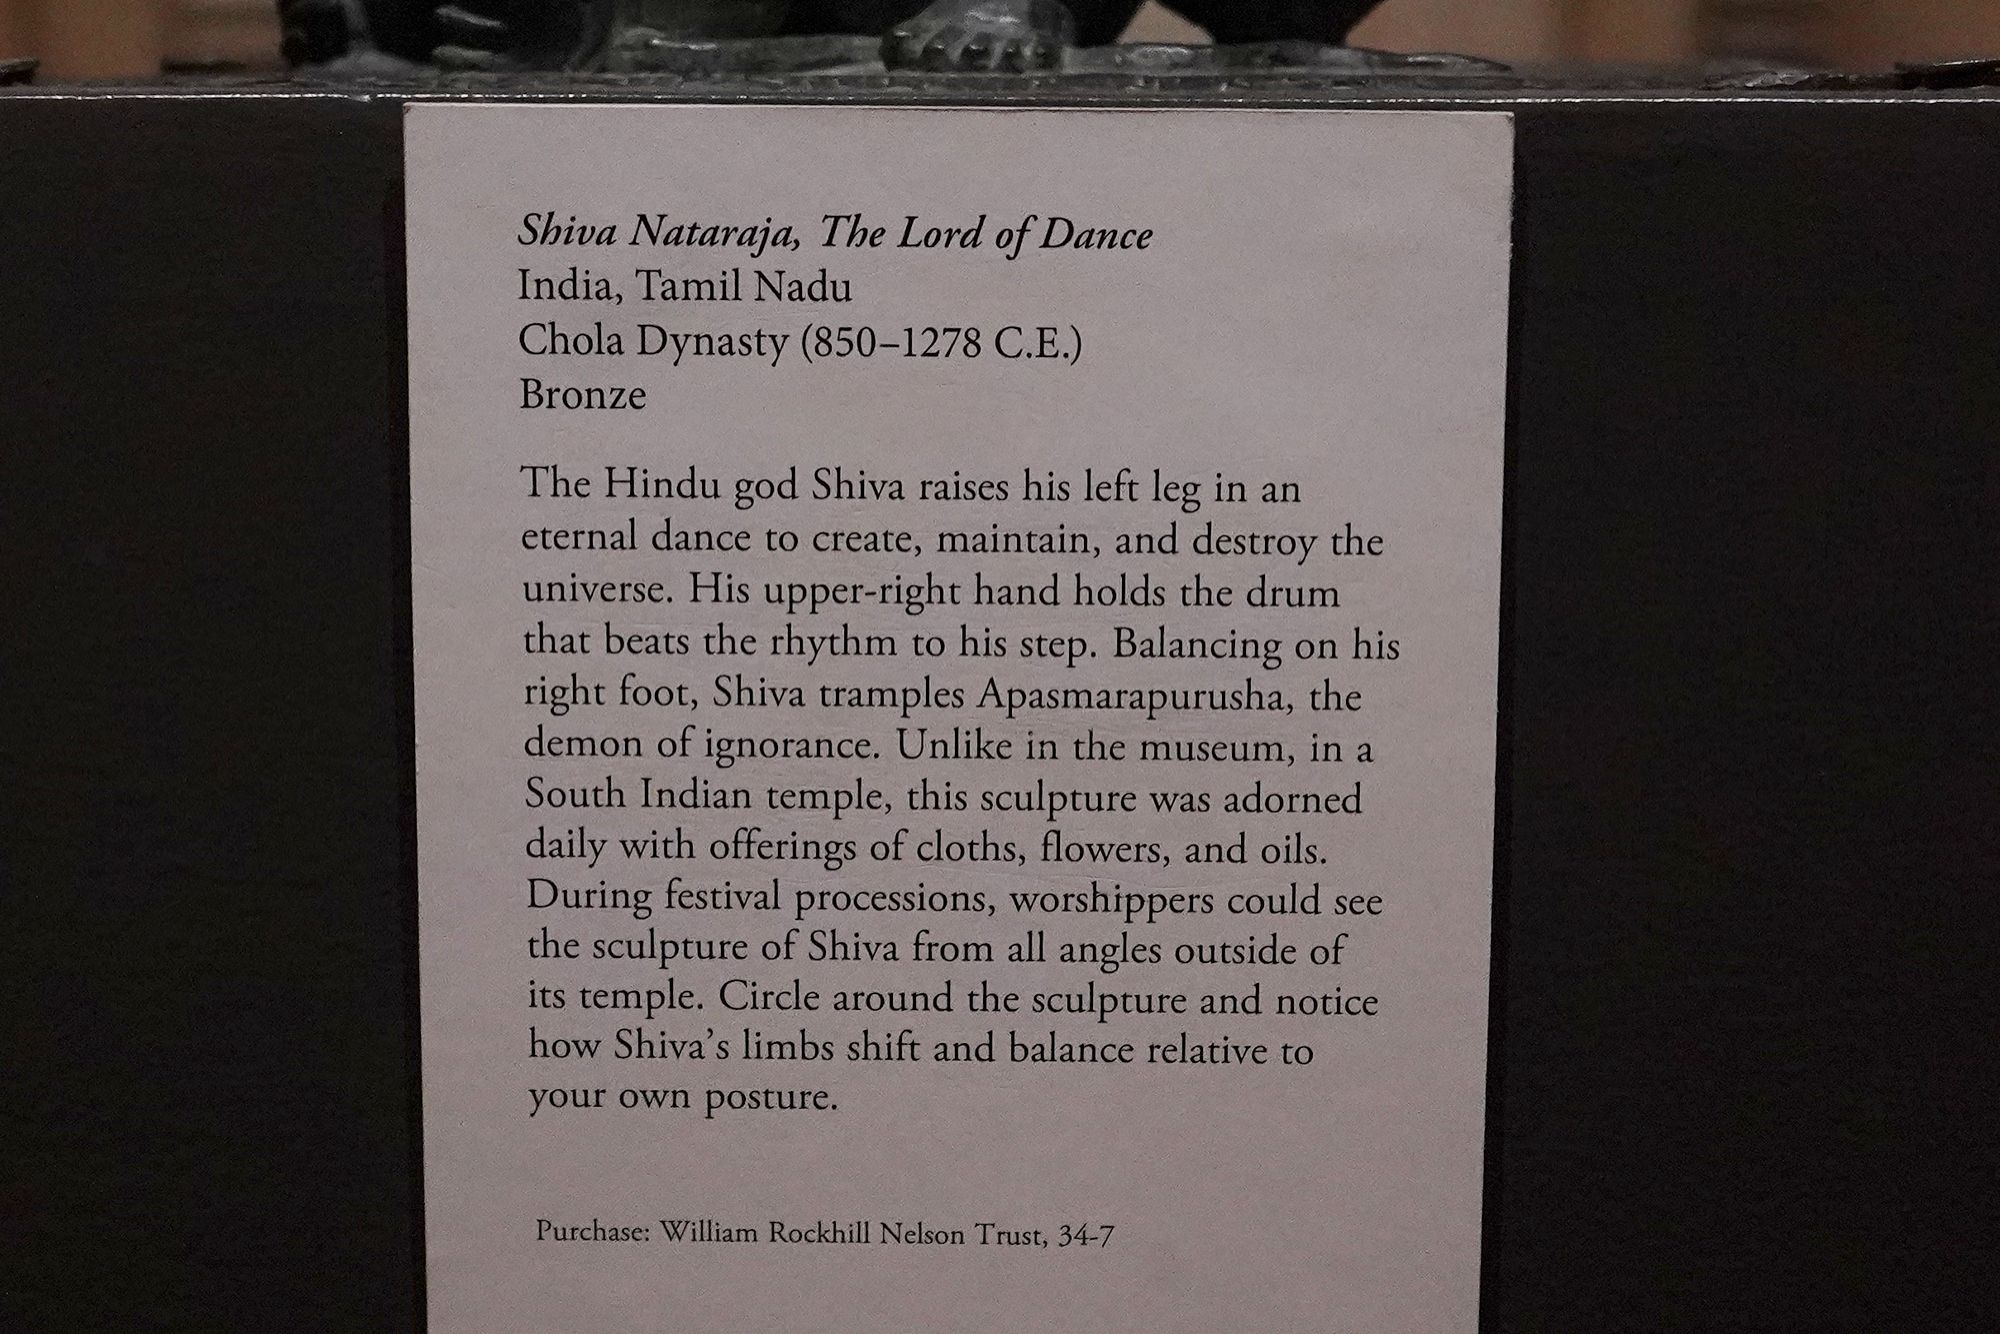 Shiva Nataraja, The Lord of Dance
India, Tamil Nadu
Chola Dynasty (850–1278 C.E.)
Bronze
The Hindu god Shiva raises his left leg in an
eternal dance to create, maintain, and destroy the
universe. His upper-right hand holds the drum
that beats the rhythm to his step. Balancing on his
right foot, Shiva tramples Apasmarapurusha, the
demon of ignorance. Unlike in the museum, in a
South Indian temple, this sculpture was adorned
daily with offerings of cloths, flowers, and oils.
During festival processions, worshippers could see
the sculpture of Shiva from all angles outside of
its temple. Circle around the sculpture and notice
how Shiva’s limbs shift and balance relative to
your own posture.
Purchase: William Rockhill Nelson Trust, 34-7